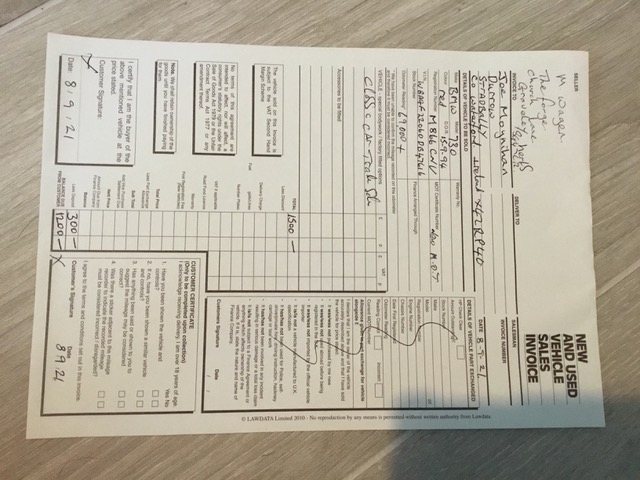 SELLER
M Wagen
The forge
Church Lane
Graveley
Herts
NEW
AND USED
VEHICLE
SALES
INVOICE
INVOICE TO
DELIVER TO
SALESMAN
INVOICE NUMBER
Joe Moynihan
Durrow
STRADBALLY
Co waterford Ireland X42RP40
DATE 8-9-21
DETAILS OF VEHICLE TO BE SOLD
Make BMW Model 730 Warranty No.
Colour red D.O.R. 15.9.94
Registration Number M866 CNV MOT Certificate Number NO M.O.T
V.I.N.
Stock Number Finance Arranged Through
Odometer Reading 69000 +
* We have been unable to confirm the mileage recorded on this odometer
and therefore it must be considered incorrect
VEHICLE - special (bodywork / factory fitted options £ P £ VAT P
Classic car Trade Sale
Accessories to be fitted
TOTAL 1500 —
Less Discount
Delivery Charge
Fuel galls/Litres
Number Plates
VAT if applicable
Road Fund Licence
Warranty
First Registration Fee
(New Vehicles)
Total Price
Less Part Exchange
Allowance
Sub Total
Add Hire Purchase
Settlement Due
Nett Price
Amount Due from
Finance Company
Balance
Less Deposit 300 —
BALANCE DUE
FROM CUSTOMER 1200 —
The vehicle sold on this Invoice is
subject to the VAT Second Hand
Margin Scheme
No terms of this agreement are
intended to affect, nor will affect, a
consumer's statutory rights under the
Sale of Goods Act 1979 or the Unfair
Contract Terms Act 1977 or any
amendment thereof.
Note. We shall retain ownership of the
goods until you have finished paying
for them.
I certify that I am the buyer of the
above mentioned vehicle at the
price stated.
Customer Signature:
X
Date: 8 / 9 / 21
DETAILS OF VEHICLE PART EXCHANGED
HP Check Clear
Amount Outstanding
Stock Number
Make
Model
Registration Number
Engine Number
Chassis Number
Date First Registered
Odometer Reading
Reading Correct Incorrect
Current MOT Number
Allowance given in part exchange for vehicle
alongside £
I declare that I am the owner of the vehicle
accurately described above and that I have sold
the vehicle for price stated.
• It was/was not purchased by me new
• It was/was not used abroad before being
registered in the U.K.
• It was/was not imported by the official vehicle
importer
• It is/is not a vehicle manufactured to U.K.
specification
• It has/has not been used for Police, self-
drive/private hire, driving instruction, hackney
carriage or taxi work
• It has/has not been involved in any incident
resulting in serious damage or a total loss claim
• It is/is not subject to a Finance Agreement or
anything which affects ownership of the
vehicle. If it is, state the nature and name of
Finance Company.
Customers Signature Date
/ /
CUSTOMER CERTIFICATE
(Only to be completed upon collection)
I acknowledge receiving delivery. I am over 18 years of age.
Yes No
1. Have you been shown the vehicle and
controls?
2. If no, have you been shown a similar vehicle
and controls?
3. Has anything been said or shown to you to
suggest the mileage may be considered
correct?
4. Was there a sticker adjacent to the mileage
recorder to indicate the recorded mileage
must be considered incorrect / disregarded?
I agree to the terms and conditions set out in this invoice.
Customer's Signature Date
X 8 9 21
© LAWDATA Limited 2010 - No reproduction by any means is permitted without written authority from Lawdata